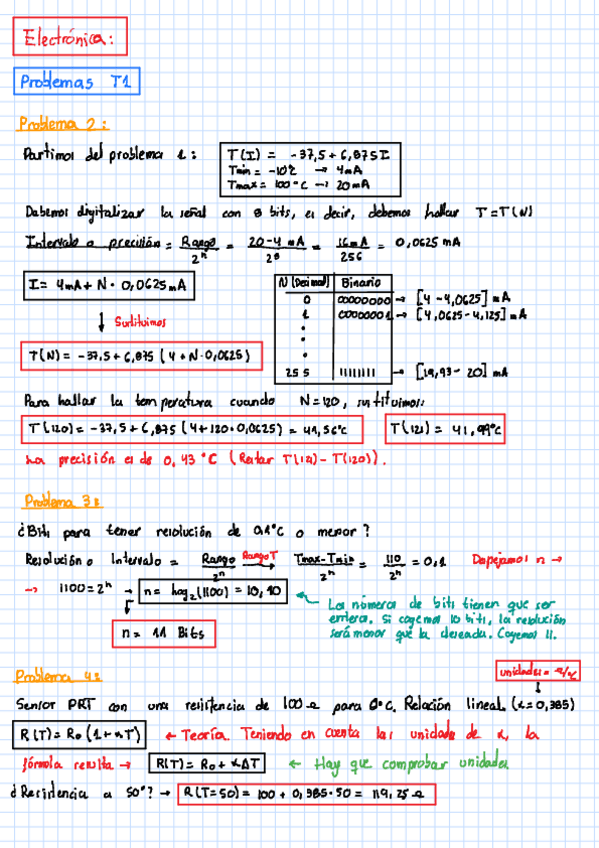 Electrónica:
Problemas T1
Problema 2:
Partimos del problema 1: T(I) = -37,5 + 6,875 I
Tmin = -10ºC → 4mA
Tmax = 100ºC → 20mA
Debemos digitalizar la señal con 8 bits, es decir, debemos hallar T=T(N)
Intervalo o precisión = Rango / 2ⁿ = 20-4 mA / 2⁸ = 16mA / 256 = 0,0625 mA
I = 4mA + N · 0,0625 mA
N (Decimal) Binario
0 00000000 → [4 - 4,0625] mA
1 00000001 → [4,0625 - 4,125] mA
↓ Sustituimos
T(N) = -37,5 + 6,875 (4 + N·0,0625)
255 11111111 → [19,93 - 20] mA
Para hallar la temperatura cuando N=120, sustituimos:
T(120) = -37,5 + 6,875 (4+120·0,0625) = 41,56ºC T(121) = 41,99ºC
La precisión es de 0,43 ºC (Restar T(121) - T(120)).
Problema 3:
¿Bits para tener resolución de 0,1ºC o menor?
Resolución o Intervalo = Rango / 2ⁿ Rango T → Tmax-Tmin / 2ⁿ = 110 / 2ⁿ = 0,1 Despejamos n →
→ 1100 = 2ⁿ → n = log₂(1100) = 10,10
n = 11 Bits
Los números de bits tienen que ser
enteros. Si cogemos 10 bits, la resolución
será menor que la deseada. Cogemos 11.
Problema 4:
unidades = Ω/ºC
Sensor PRT con una resistencia de 100 Ω para 0ºC. Relación lineal. (α=0,385)
R(T) = R₀ (1+αT) ← Teoría. Teniendo en cuenta las unidades de α, la
fórmula resulta → R(T) = R₀ + αΔT ← Hay que comprobar unidades
¿Resistencia a 50º? → R(T=50) = 100 + 0,385·50 = 119,25 Ω